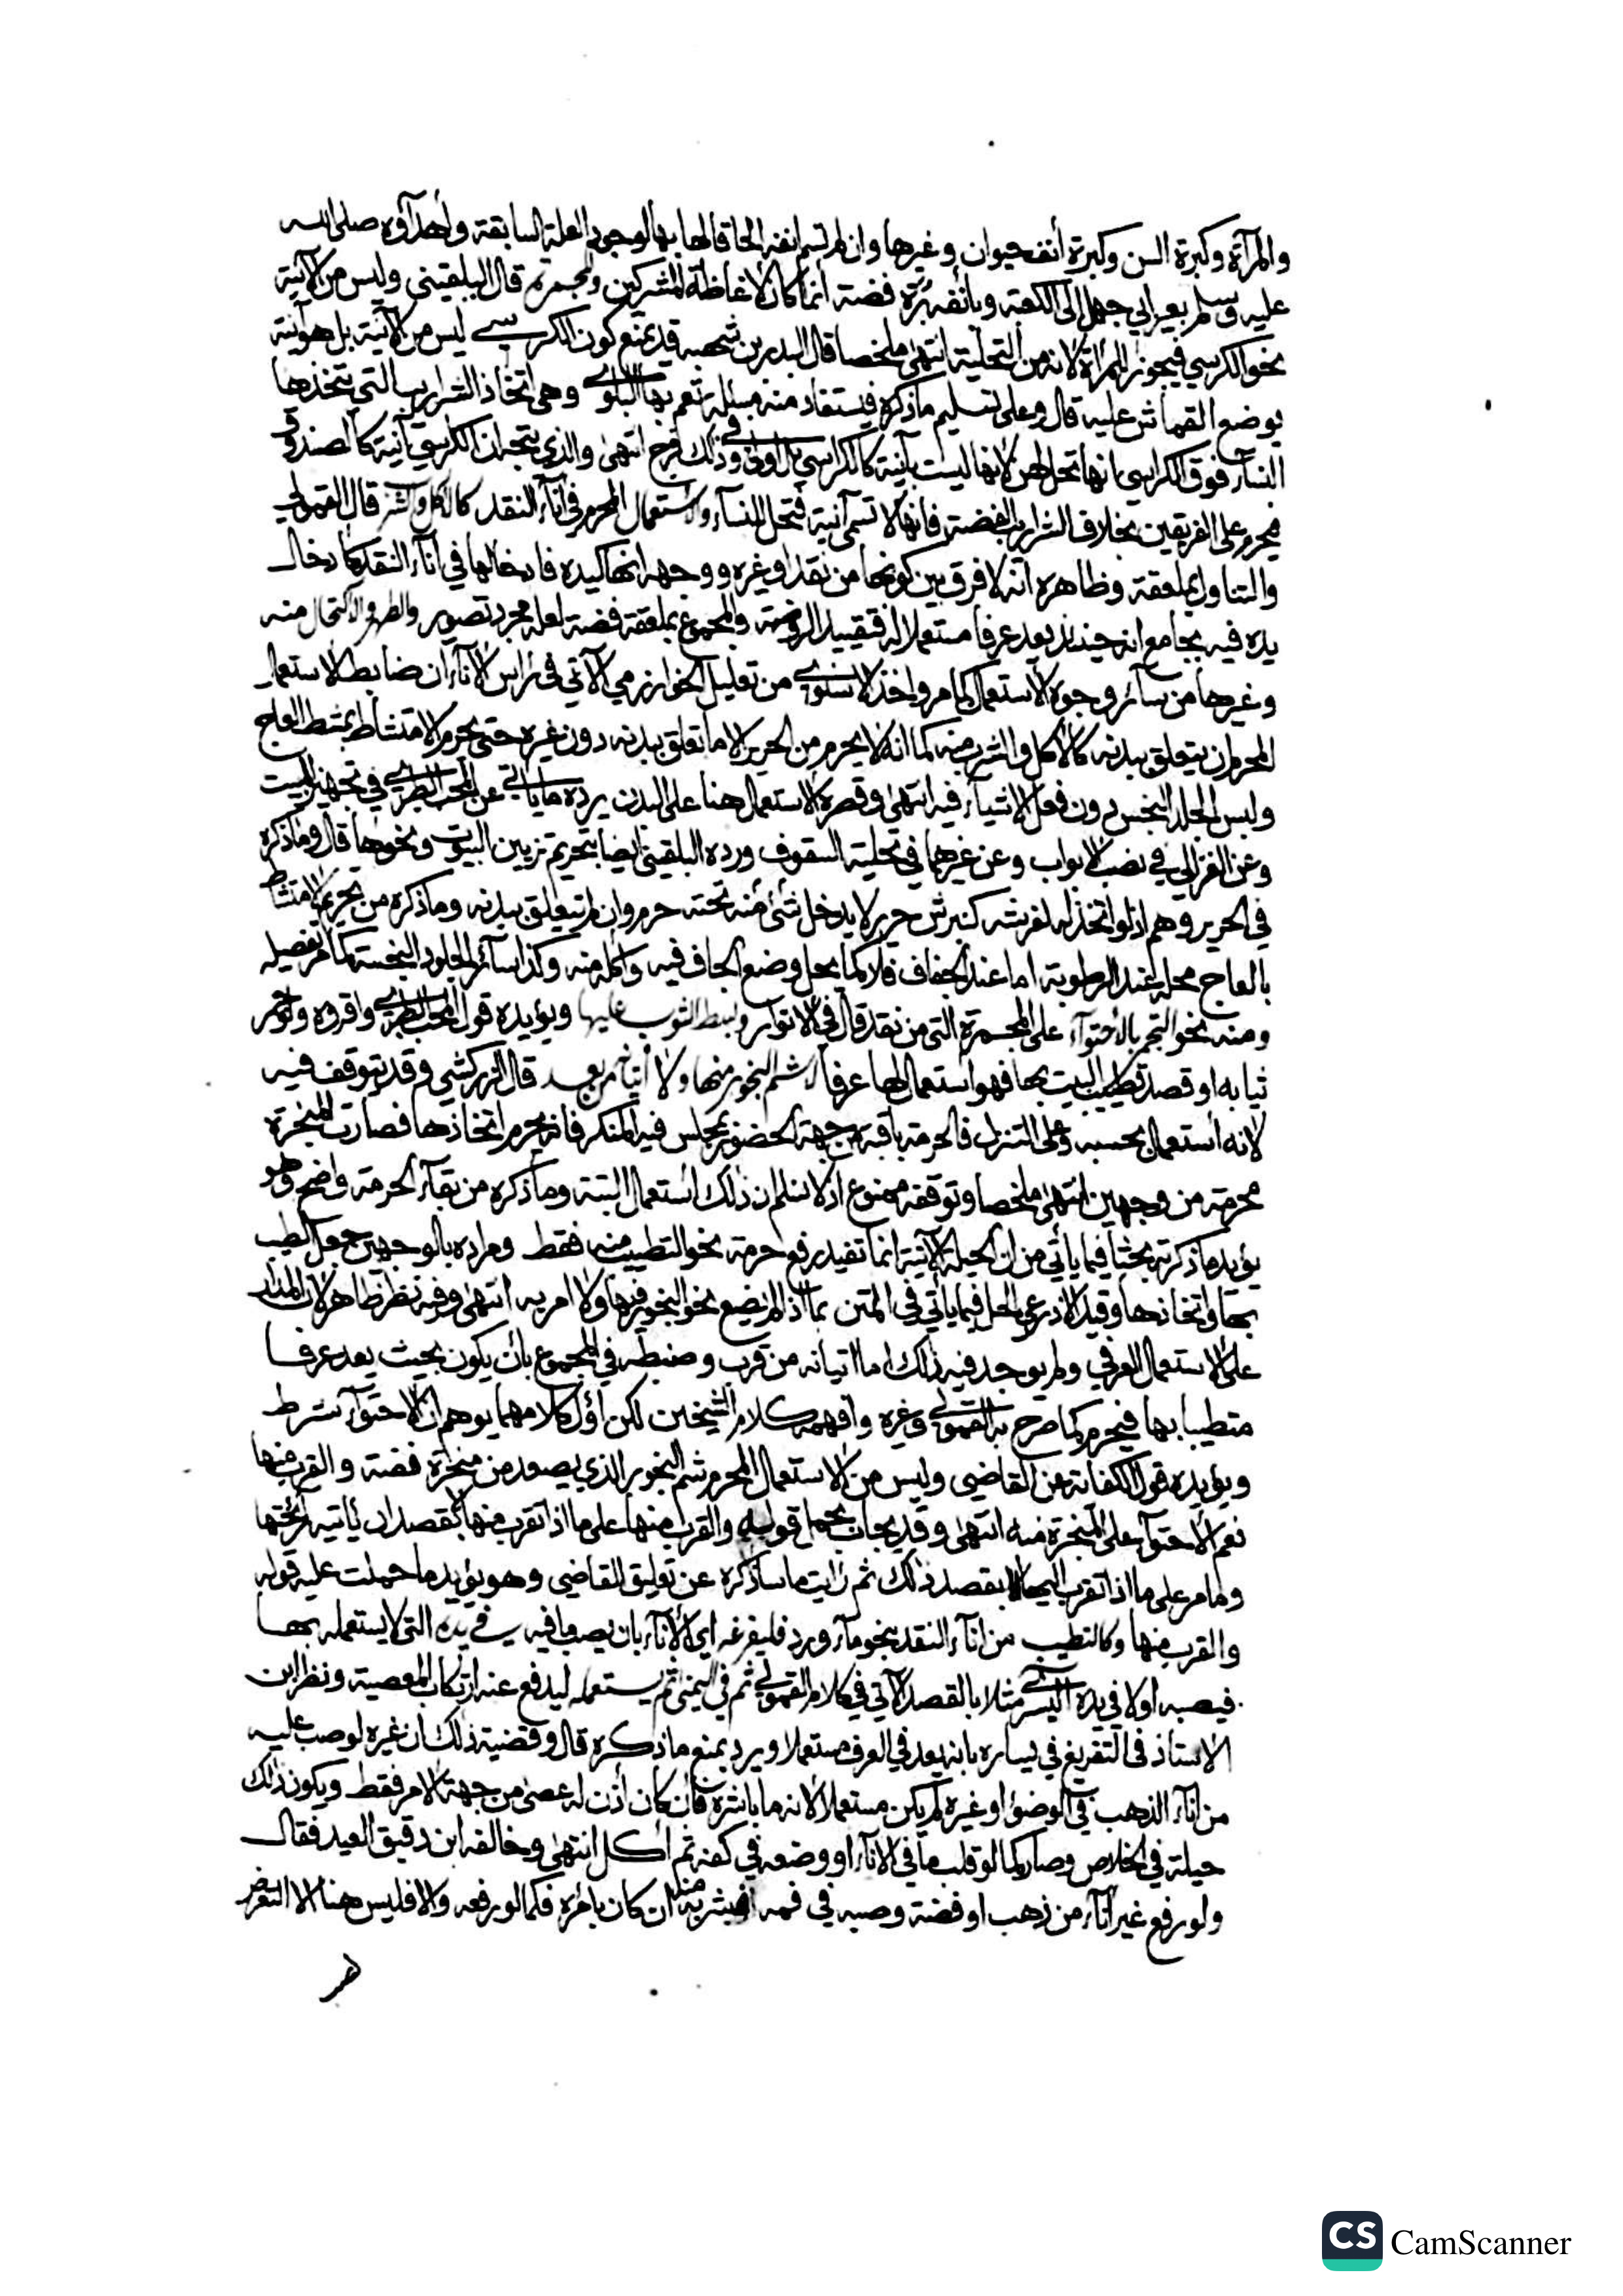 والمرآة وكبرة السن وكبرة أنف حيوان وغيرها وان لم تسم انفه الحاقا لها بها لوجود العلة السابقة وأهداؤه صلى الله
عليه وسلم بعير ابي جهل الى الكعبة وبأنفه برة فضة انما كان لاغاظة المشركين ومجمرة قال البلقيني وليس من الآنية
نحو الكرسي فيجوز للمرأة لانه من التحلية انتهى ملخصا قال البدر بن شهبه قد يمنع كون الكرسي ليس من الآنية بل هو آنية
بوضع القماش عليه قال وعلى تسليم ما ذكره فيستفاد منه مسئلة تعم بها البلوى وهي اتخاذ الشراريب التي تتخذها
النسآء فوق الكراسي بانها تحل لهن لانها ليست بآنية كالكراسي بل اولى وفي ذلك فرج انتهى والذي يتجه ان الكراسي آنية كالصندوق
فيحرم على الفريقين بخلاف الشراريب الفضة فانها لا تسمى آنية فتحل للنسآء والاستعمال المحرم في انآء النقد كالاكل والشرب قال القمولي
والتناول بملعقة وظاهره أنه لا فرق بين كونها من نقد او غيره ووجهه انها كيده فادخالها في انآء النقد كادخال
يده فيه بجامع انه حينئذ يعد عرفا مستعملا له فتقييد الروضة والمجموع بملعقة فضة لعله مجرد تصوير والطهر والاكتحال منه
وغيرها من سآئر وجوه الاستعمال كما مر واخذ الاسنوي من تعليل الخوارزمي الآتي في رأس الانآء ان ضابط الاستعمال
المحرم ان يتعلق ببدنه كالاكل والشرب منه كما انه لا يحرم من الحرير الا ما تعلق ببدنه دون غيره حتى يحرم الامتشاط بمشط العاج
ولبس الجلد النجس دون فعل الاشيآء فيه انتهى وقصره الاستعمال هنا على البدن يرده ما يأتي عن المحب الطبري في تجهيز البيت
وعن الغزالي في نصب الابواب وعن غيرهما في تحلية السقوف ورده البلقيني ايضا بتحريم تزيين البيوت ونحوها قال وما ذكره
في الحرير وهم اذ لو اتخذ له لفرشه حرير لا يدخل شئ منه تحته حرم وان لم يتعلق ببدنه وما ذكره من تحريم الامتشاط
بالعاج محله عند الرطوبة اما عند الجفاف فلا كما يحل وضع الجاف فيه واكله منه وكذا سآئر الجلود النجسة كما مر تفصيله
ومنه نحو التبخر بالأحتوآء على المجمرة التي من نقد قال في الانوار وبسط الثوب عليها ويؤيده قول المحب الطبري واقروه ولو بخر
ثيابه او قصد تطييب البيت بها فهو استعمال لها عرفا لا شم البخور منها ولا اتيانه من بعد قال الزركشي وقد يتوقف فيه
لانه أستعمال بحسبه وعلى التنزل فالحرمة باقية من جهة الحضور بمجلس فيه المنكر فانه يحرم اتخاذها فصارت المبخرة
محرمة من وجهين انتهى ملخصا وتوقفه ممنوع اذ لا نسلم ان ذلك أستعمال البتة وما ذكره من بقآء الحرمة واضح وهو
يؤيد ما ذكرته بحثا فيما يأتي من ان الحيلة الآتية انما تفيد رفع حرمة نحو التطييب منه فقط ومراده بالوجهين جعل الطيب
بها واتخاذها وقيد الاذرعي الحل فيما يأتي في المتن بما اذا لم يضع نحو البخور فيها ولا امر به انتهى وفيه نظر ظاهر لان المدار
على الاستعمال العرفي ولم يوجد فيه ذلك اما اتيانه من قرب وضبطه في المجموع بأن يكون بحيث يعد عرفا
متطيبا بها فيحرم كما صرح به القمولي وغيره وافهمه كلام الشيخين لكن اول كلامهما يوهم ان الاحتوآء شرط
ويؤيده قول الكفاية عن القاضي وليس من الاستعمال المحرم شم البخور الذي يصعد من مبخرة فضة والقرب منها
نعم الاحتوآء على المبخرة منه انتهى وقد يجاب بحمل قوله والقرب منها على ما اذا تقرب منها لا بقصد ان يأتيه رائحتها
وما مر على ما اذا تقرب اليها بقصد ذلك ثم رأيت ما سأذكره عن تعليق القاضي وهو يؤيد ما حملت عليه قوله
والقرب منها وكالتطيب من انآء النقد بنحو مآء ورد فليفرغه اي الانآء بان يصب ما فيه في يده التي لا يستعمله بها
فيصبه اولا في يده اليسرى مثلا بالقصد الآتي في كلام القمولي ثم في اليمنى ثم يستعمله ليدفع عنه ارتكاب المعصية ونظر ابن
الاستاذ في التفريغ في يساره بانه يعد في العرف مستعملا ويرد بمنع ما ذكره قال وقضية ذلك ان غيره لو صب عليه
من انآء الذهب في الوضوء او غيره لم يكن مستعملا لانه ما باشره فان كان أذن له عصى من جهة الامر فقط ويكون ذلك
حيلة في الخلاص وصار كما لو قلب ما في الانآء او وضعه في كفه ثم أكل انتهى وخالفه ابن دقيق العيد فقال
ولو رفع غير انآء من ذهب او فضة وصبه في فمه فيشربه منه ان كان بامره فكما لو رفعه والا فليس هنا الا التعرض